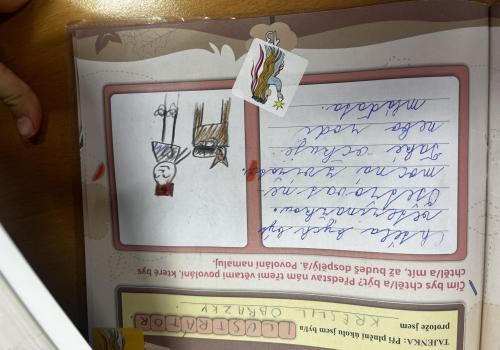 TAJENKA: Při plnění úkolu jsem byl/a ILUSTRÁTOR
protože jsem KRESLIL OBRÁZKY
Čím bys chtěl/a být? Představ nám třemi větami povolání, které bys
chtěl/a mít, až budeš dospělý/á. Povolání namaluj.
Chtěla bych být
veterinářkou.
Ošetřovat ne-
moc ná zvířata.
Také očkuje
nebo rodí
mláďata.